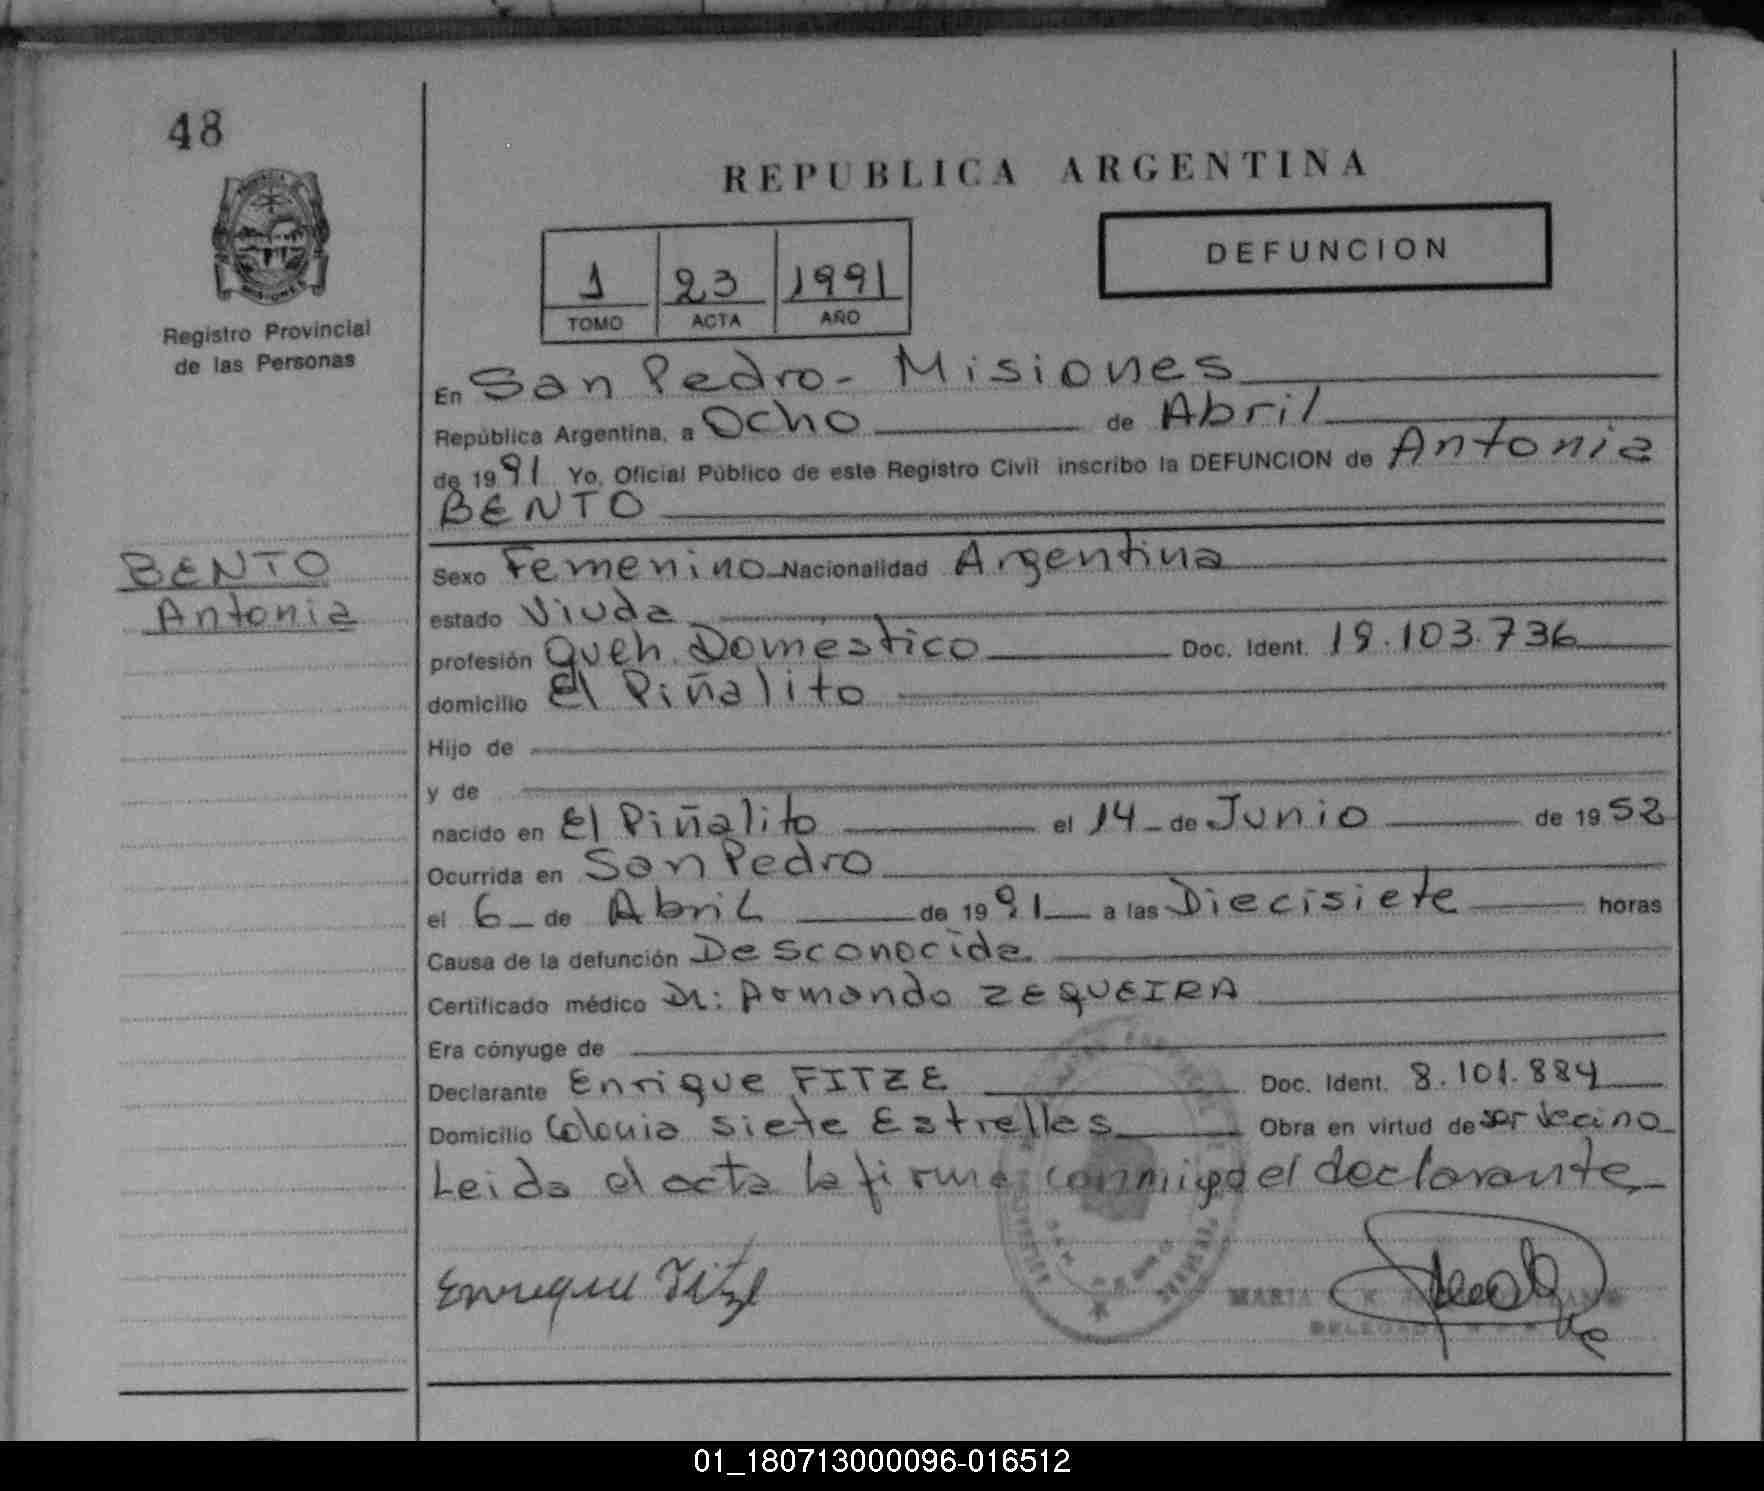 48
REPUBLICA ARGENTINA
DEFUNCION
1 23 1991
TOMO ACTA AÑO
Registro Provincial
de las Personas
En San Pedro - Misiones
República Argentina, a Ocho de Abril
de 1991 Yo, Oficial Público de este Registro Civil inscribo la DEFUNCION de Antonia
BENTO
BENTO
Antonia
Sexo Femenino Nacionalidad Argentina
estado Viuda
profesión Queh. Domestico Doc. Ident. 19.103.736
domicilio El Piñalito
Hijo de
y de
nacido en El Piñalito el 14 de Junio de 1952
Ocurrida en San Pedro
el 6 de Abril de 1991 a las Diecisiete horas
Causa de la defunción Desconocida
Certificado médico Dr: Armando ZEQUEIRA
Era cónyuge de
Declarante Enrique FITZE Doc. Ident. 8.101.884
Domicilio Colonia Siete Estrelles Obra en virtud de ser vecino
Leida el acta la firma conmigo el declarante
Enrique Fitze
MARIA
01_180713000096-016512